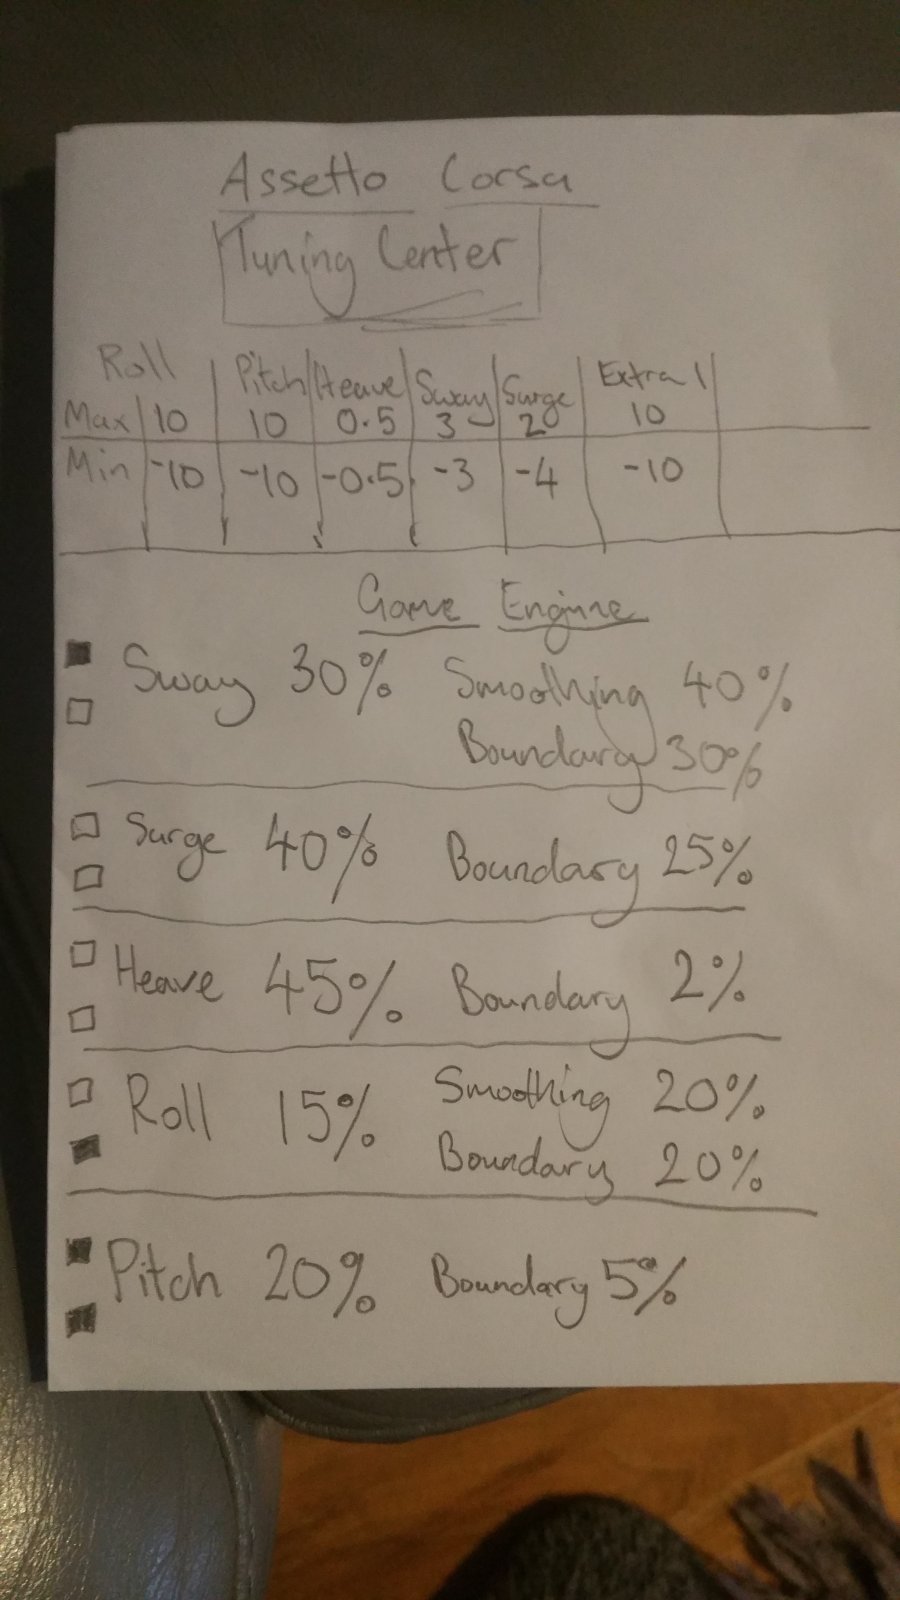 Assetto Corsa
Tuning Center
Roll Pitch Heave Sway Surge Extra 1
Max 10 10 0.5 3 20 10
Min -10 -10 -0.5 -3 -4 -10
Game Engine
Sway 30% Smoothing 40%
Boundary 30%
Surge 40% Boundary 25%
Heave 45% Boundary 2%
Roll 15% Smoothing 20%
Boundary 20%
Pitch 20% Boundary 5%